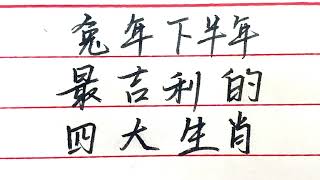 兔年下半年
最吉利的
四大生肖